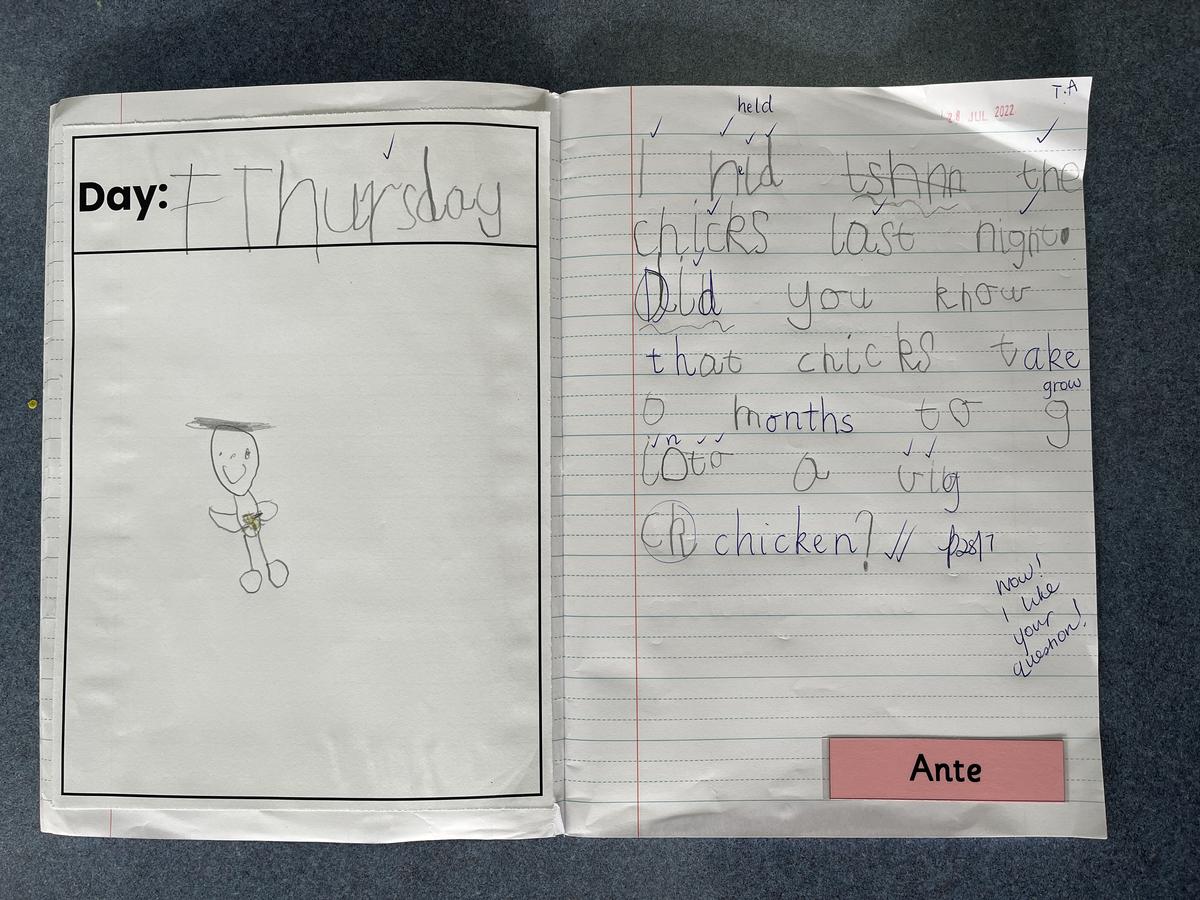 Day: T Thursday
T.A
28 JUL 2022
held
I hld tshnn the
chicks last night.
Did you know
that chicks take
grow
0 months to g
in
ioto a vig
Ch chicken?
28/7
Wow!
I like
your
question!
Ante